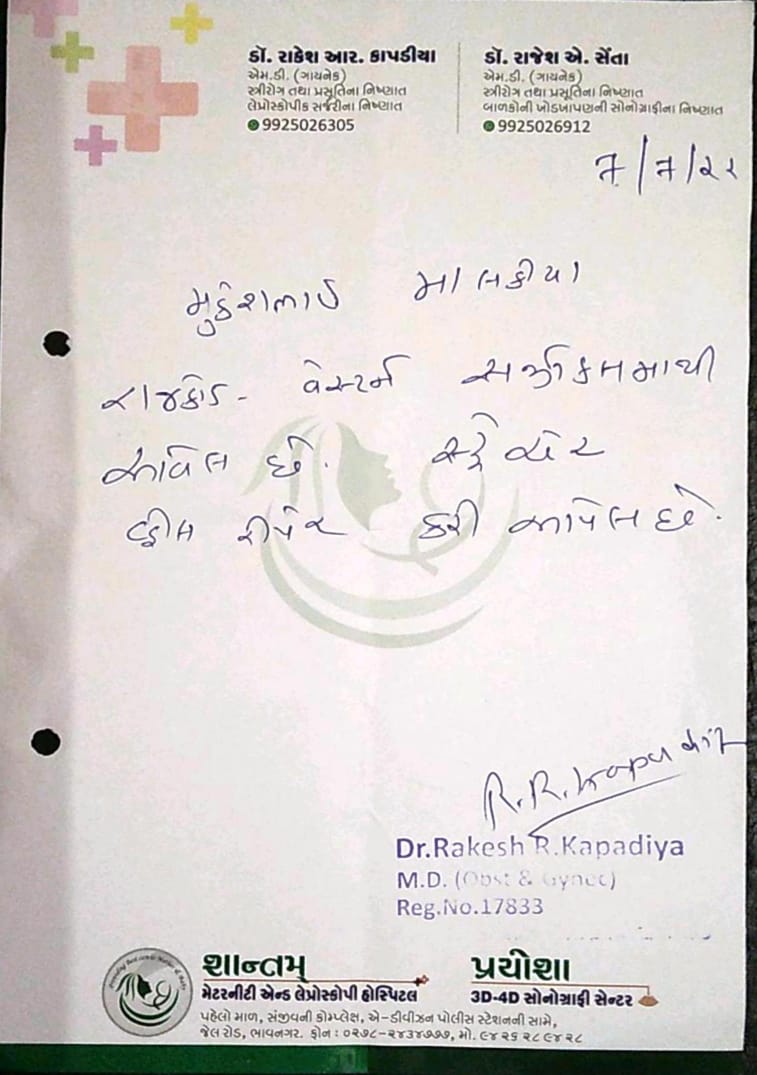 ડૉ. રાકેશ આર. કાપડીયા
એમ.ડી. (ગાયનેક)
સ્ત્રીરોગ તથા પ્રસૂતિના નિષ્ણાત
લેપ્રોસ્કોપીક સર્જરીના નિષ્ણાત
9925026305
ડૉ. રાજેશ એ. સેંતા
એમ.ડી. (ગાયનેક)
સ્ત્રીરોગ તથા પ્રસૂતિના નિષ્ણાત
બાળકોની ખોડખાપણની સોનોગ્રાફીના નિષ્ણાત
9925026912
૭/૭/૨૨
મુકેશભાઈ માલકીયા
રાજકોટ - વેસ્ટર્ન સર્જીકલમાથી
આવેલ છે.
રીપેર કરી આપેલ છે.
R.R. Kapadiya
Dr.Rakesh R.Kapadiya
M.D. (Obst & Gynec)
Reg.No.17833
શાન્તમ્
મેટરનીટી એન્ડ લેપ્રોસ્કોપી હોસ્પિટલ
પ્રયોશા
3D-4D સોનોગ્રાફી સેન્ટર
પહેલો માળ, સંજીવની કોમ્પ્લેક્ષ, એ-ડીવીઝન પોલીસ સ્ટેશનની સામે,
જેલ રોડ, ભાવનગર. ફોન : ૦૨૭૮-૨૪૩૪૭૭૭, મો. ૯૪૨૬૨ ૮૯૪૨૮